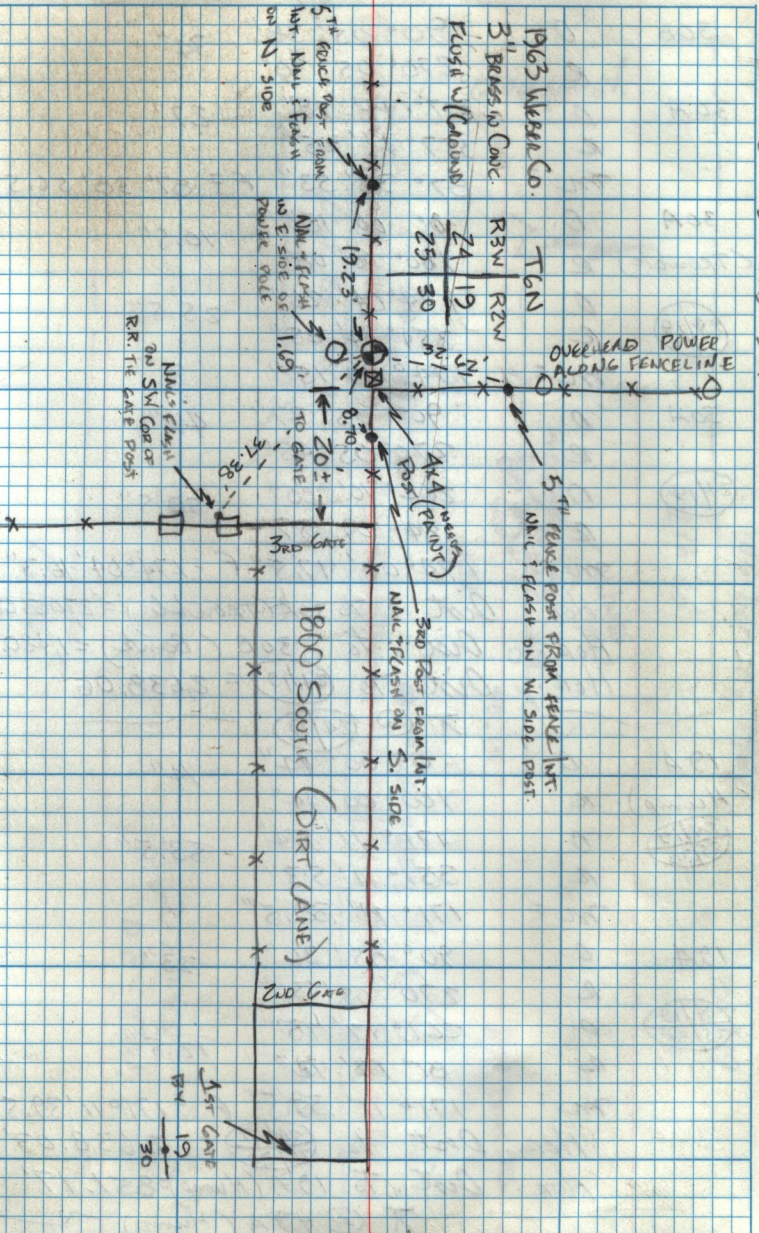 1963 WEBER CO.
3" BRASS IN CONC.
FLUSH W/GROUND
T6N
R3W R2W
24 19
25 30
OVERHEAD POWER
ALONG FENCELINE
5TH FENCE POST FROM FENCE INT.
NAIL & FLASH ON W SIDE POST.
5TH FENCE POST FROM
INT. NAIL & FLASH
ON N. SIDE
19.23'
NAIL & FLASH
IN E. SIDE OF
POWER POLE
1.69
8.70'
4x4 (NEEDS
POST PAINT)
3RD POST FROM INT.
NAIL & FLASH ON S. SIDE
20'±
TO GATE
37.38
NAIL & FLASH
ON SW COR OF
R.R. TIE GATE POST
3RD GATE
1800 SOUTH (DIRT LANE)
2ND GATE
1ST GATE
BY 19
30